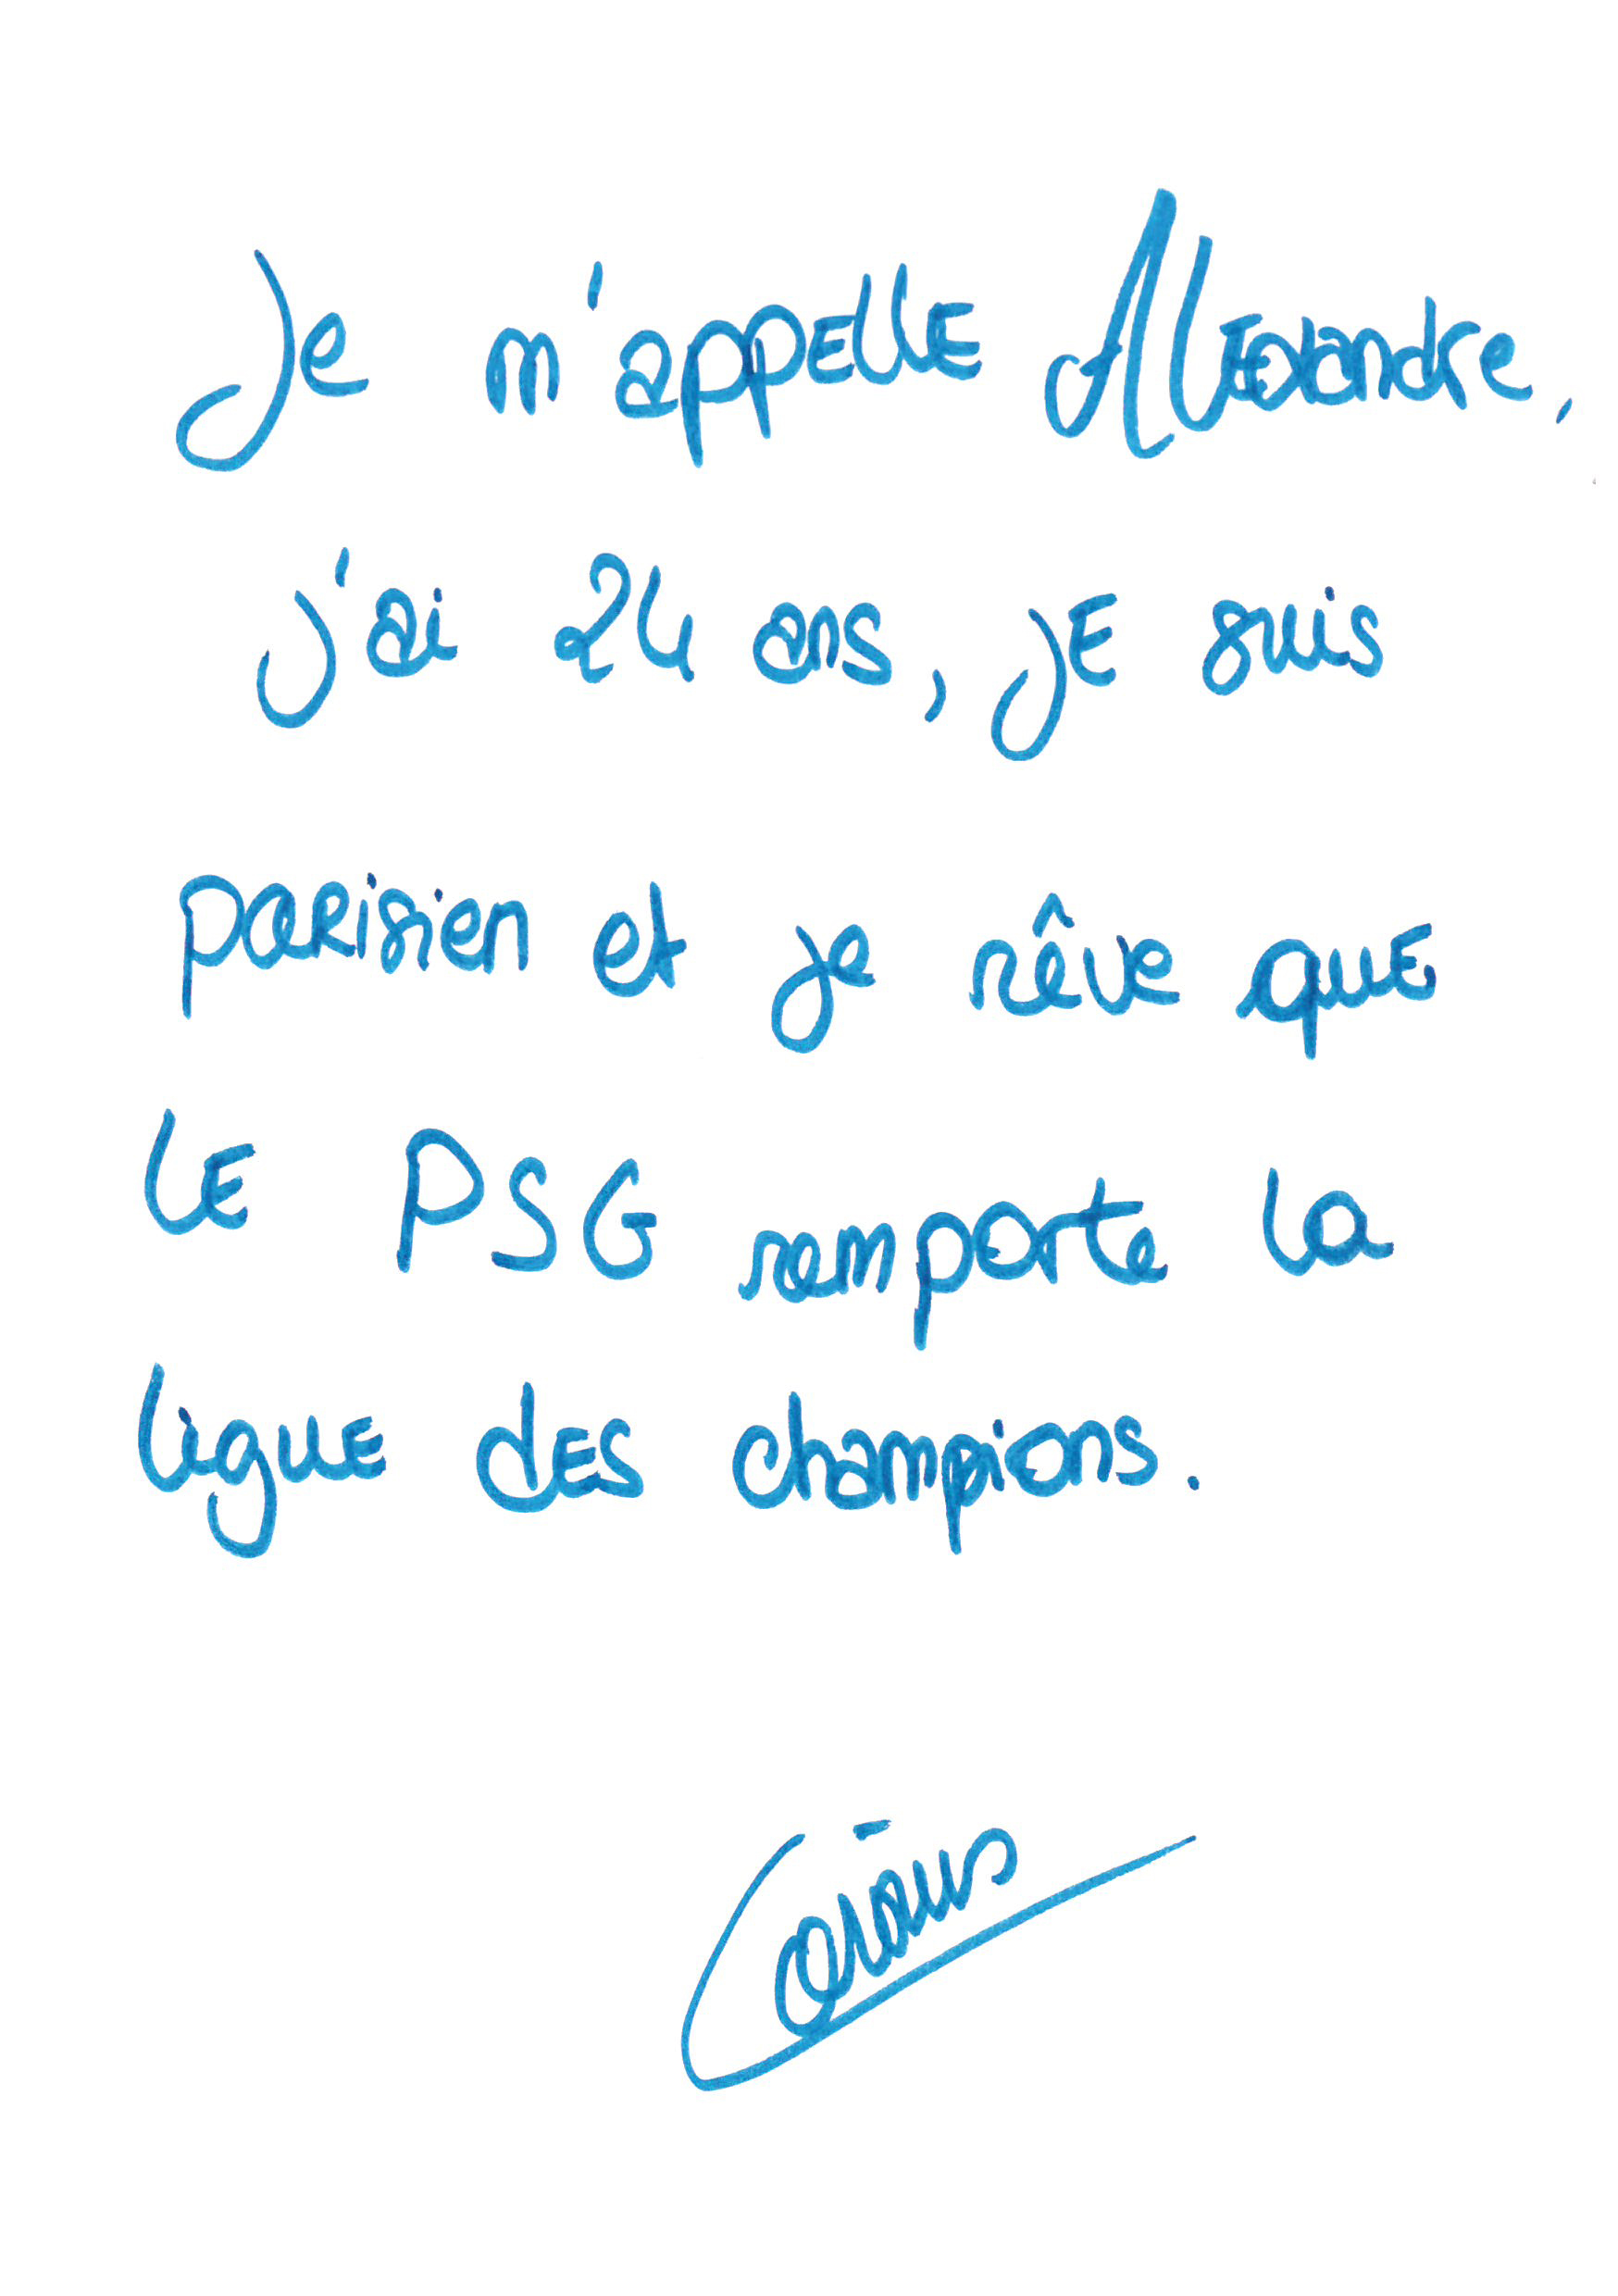 Je m'appelle Alexandre,
j'ai 24 ans, je suis
parisien et je rêve que
le PSG remporte la
ligue des champions.